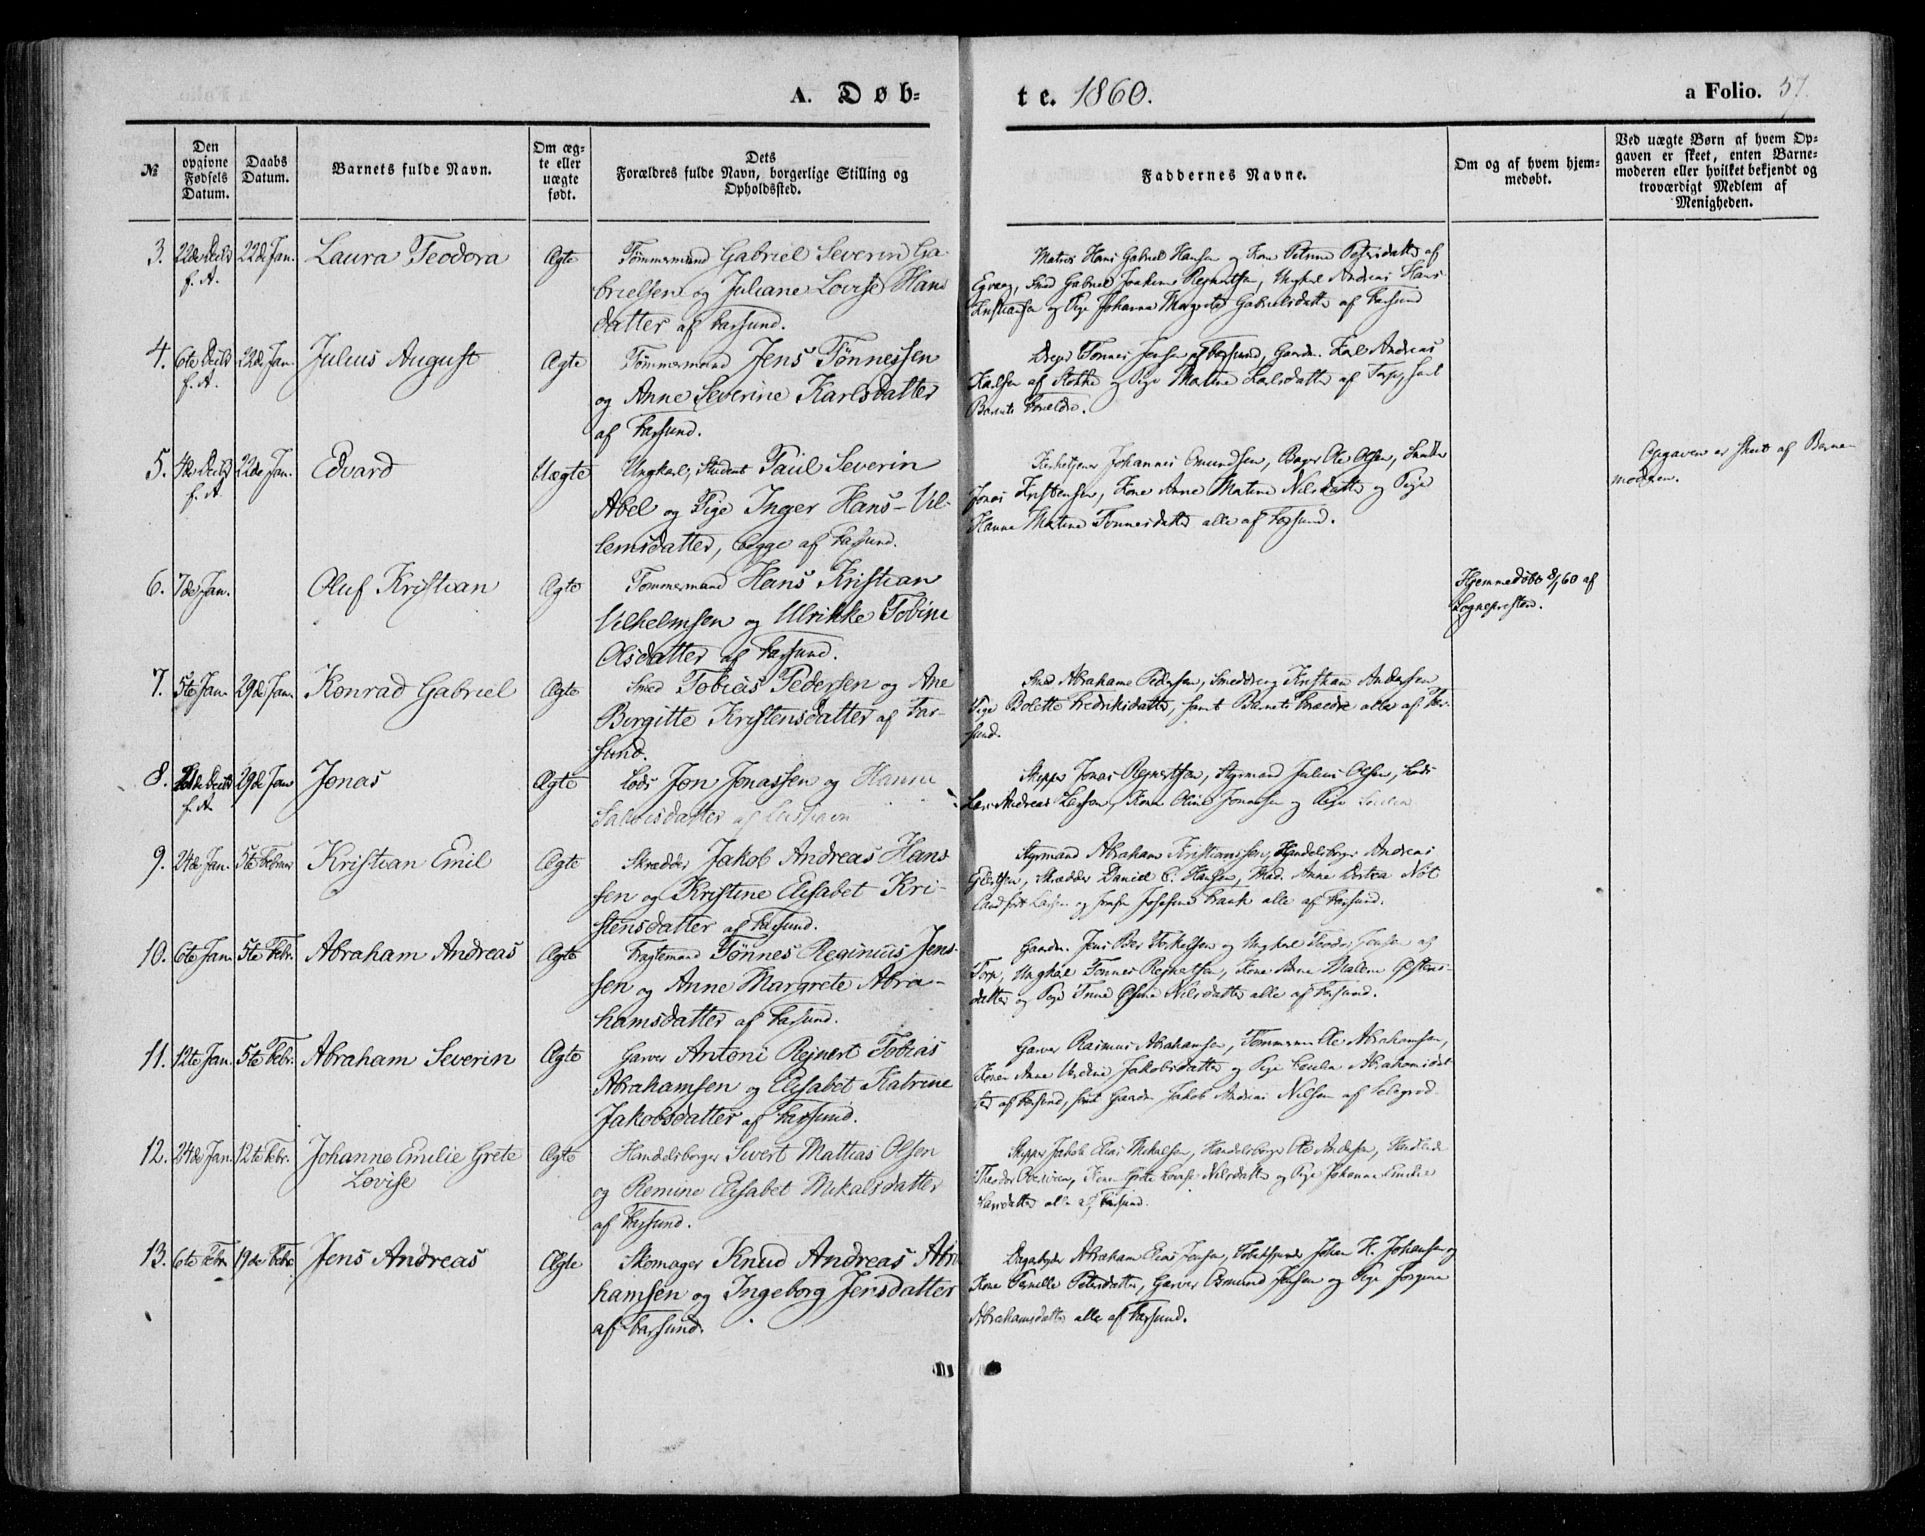 A. Døb-
te. 1860.
a Folio. 57.
№
Den opgivne Fødsels Datum.
Daabs Datum.
Barnets fulde Navn.
Om ægte eller uægte født.
Dets Forældres fulde Navn, borgerlige Stilling og Opholdssted.
Faddernes Navne.
Om og af hvem hjemmedøbt.
Ved uægte Børn af hvem Opgaven er skeet, enten Barnemoderen eller hvilket bekjendt og troværdigt Medlem af Menigheden.
3. 22de Decbr 22de Jan. Laura Teodora Ægte Tømmermand Gabriel Severin Ga-
f. A. brielsen og Juliane Lovise Hans
datter af Farsund.
Hans Gabriel Hansen og Kone Petrine Petersdatter af
Egvaag, Smed Gabriel Joakim Reinertsen, Ungkarl Andreas Hans
Kristiansen og Pige Johanna Margrete Gabrielsdatter af Farsund
4. 6te Decbr 22de Jan. Julius August Ægte Tømmermand Jens Tønnessen
f. A. og Anne Severine Karlsdatter
af Farsund.
Tønnes Jensen af Farsund, Gaardm. Karl Andreas
Karlsen af og Pige Martine Karlsdatter af Torp, samt
Barnets Forældre.
5. Decbr 22de Jan. Edvard Uægte Ungkarl, Student Paul Severin
f. A. Abel og Pige Inger Hans-Vil-
lemsdatter, begge af Farsund.
Kirketjener Johannes Omundsen, Bager Ole Olsen,
Jonas Kristensen, Kone Anne Martine Nilsdatter og Pige
Hanne Martine Tønnesdatter alle af Farsund.
Opgaven er skeet af Barne-
moderen.
6. 7de Jan. Oluf Kristian Ægte Tømmermand Hans Kristian
Vilhelmsen og Ulrikke Tobine
Olsdatter af Farsund.
Hjemmedøbt 8/1 60 af
Sognepresten.
7. 5te Jan. 29de Jan. Konrad Gabriel Ægte Smed Tobias Pedersen og Ane
Birgitte Kristensdatter af Far-
sund.
Smed Abraham Pedersen, Smeddreng Kristian Andersen
Pige Bolette Fredriksdatter, samt Barnets Forældre alle af Far-
sund.
8. Decbr 29de Jan Jonas Ægte Lods Jon Jonassen og Hanne
f. A. Salvesdatter af
Skipper Jonas Reinertsen, Styrmand Julius Olsen, Lods
Andreas Larsen, Kone Oline Jonassen og Pige
9. 24de Jan. 5te Februar Kristian Emil Ægte Skrædder Jakob Andreas Hans
sen og Kristine Elisabet Kri-
stensdatter af Farsund.
Styrmand Abraham Kristiansen, Handelsborger Andreas
Gjertsen, Skrædder Daniel C. Hansen, Mad. Anne Dortea Nøt
land født Larsen og Jomfru Josefine alle af Farsund.
10. 6te Jan. 5te Febr. Abraham Andreas Ægte Fragtemand Tønnes Reginius Jens-
sen og Anne Margrete Abra-
hamsdatter af Farsund.
Gaardm. Jens Torkelsen og Ungkarl Jensen af
Torp, Ungkarl Tønnes Reinertsen, Kone Anne Malene
datter og Pige Nilsdatter alle af Farsund.
11. 12te Jan. 5te Febr. Abraham Severin Ægte Garver Antoni Rejnert Tobias
Abrahamsen og Elisabet Katrine
Jakobsdatter af Farsund.
Garver Rasmus Abrahamsen, Tømmerm. Ole Abrahamsen,
Kone Anne Jakobsdatter og Pige Abrahamsdat
ter af Farsund, samt Gaardm. Jakob Andreas Nilsen af
12. 24de Jan. 12te Febr. Johanne Emilie Grete Ægte Handelsborger Sivert Mattias Olsen
Lovise og Remine Elisabet Mikalsdatter
af Farsund.
Skipper Jakob Elias Mikalsen, Handelsborger Ole Andersen,
Theodor Kone Grete Lovise Nilsdatter og Pige Johanne Emilie
Larsdatter alle af Farsund.
13. 6te Febr. 19de Febr. Jens Andreas Ægte Skomager Knud Andreas Abra
hamsen og Ingeborg Jensdatter
af Farsund.
Abraham Elias Jensen, Tobakspinder Johan H. Johansen og
Kone Pernille Petersdatter, Garver Osmund Jensen og Pige Jørgine
Abrahamsdatter alle af Farsund.